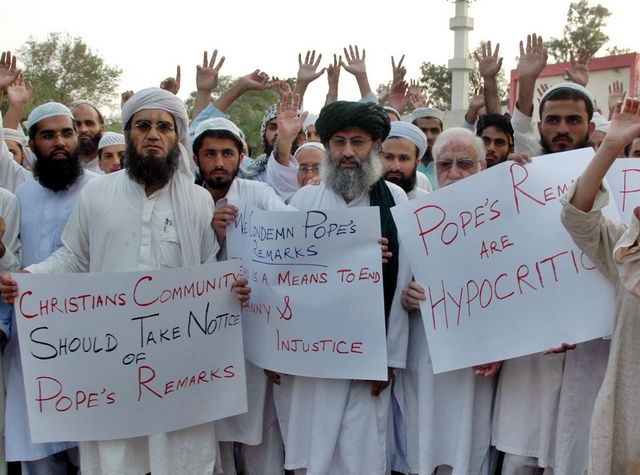 CHRISTIANS COMMUNITY
SHOULD TAKE NOTICE
OF
POPE'S REMARKS
WE CONDEMN POPE'S
REMARKS
IS A MEANS TO END
&
INJUSTICE
POPE'S
ARE
HYPOCRITIC